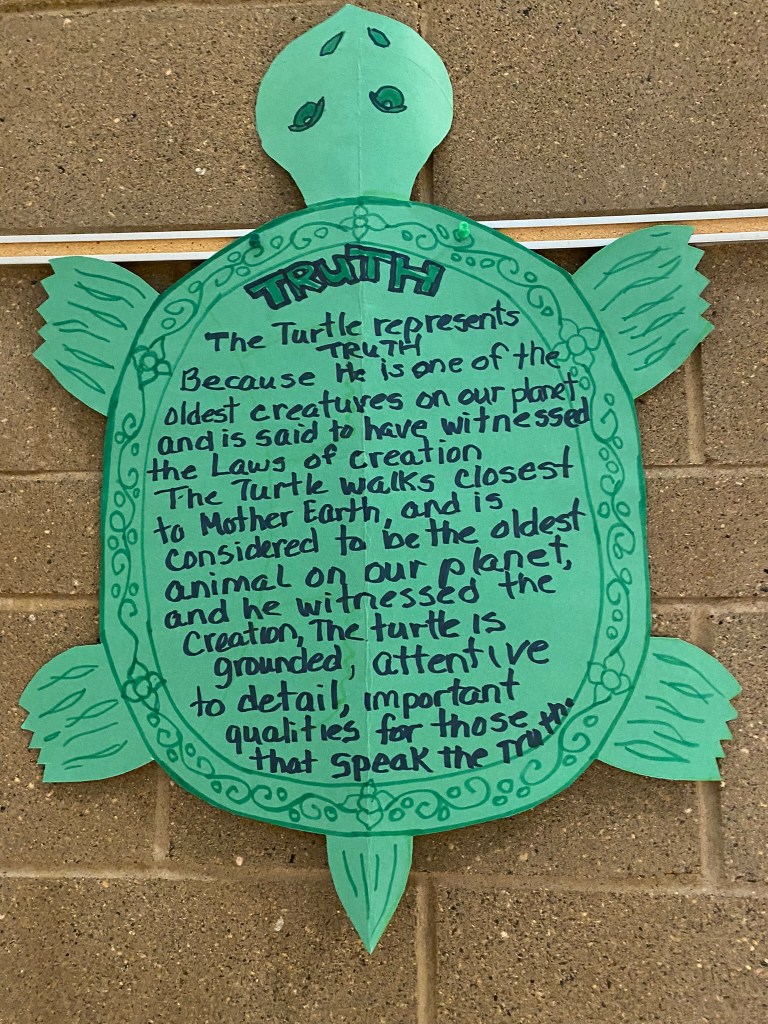 TRUTH
The Turtle represents
TRUTH
Because He is one of the
oldest creatures on our planet
and is said to have witnessed
the Laws of creation
The Turtle walks closest
to Mother Earth, and is
considered to be the oldest
animal on our planet,
and he witnessed the
Creation, The turtle is
grounded, attentive
to detail, important
qualities for those
that speak the Truth.